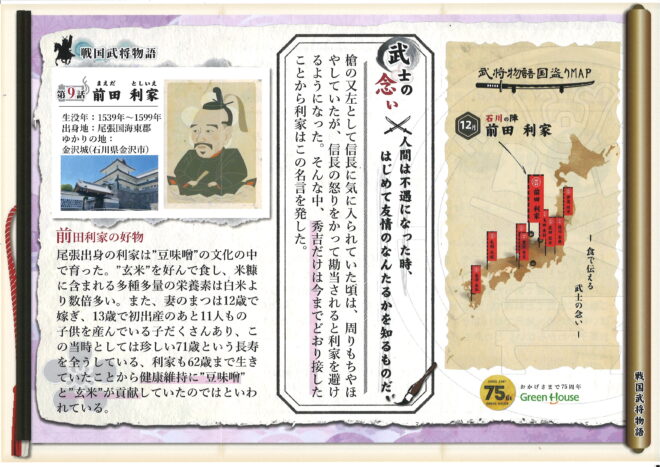 戦国武将物語
第9話
まえだ としいえ
前田 利家
生没年:1539年~1599年
出身地:尾張国海東郡
ゆかりの地:
金沢城(石川県金沢市)
前田利家の好物
尾張出身の利家は"豆味噌"の文化の中
で育った。"玄米"を好んで食し、米糠
に含まれる多種多量の栄養素は白米よ
り数倍多い。また、妻のまつは12歳で
嫁ぎ、13歳で初出産のあと11人もの
子供を産んでいる子だくさんあり、こ
の当時としては珍しい71歳という長寿
を全うしている、利家も62歳まで生き
ていたことから健康維持に"豆味噌"
と"玄米"が貢献していたのではといわ
れている。
武士の念い
人間は不遇になった時、
はじめて友情のなんたるかを知るものだ。
槍の又左として信長に気に入られていた頃は、周りもちやほ
やしていたが、信長の怒りをかって勘当されると利家を避け
るようになった。そんな中、秀吉だけは今までどおり接した
ことから利家はこの名言を発した。
武将物語国盗りMAP
12月
石川の陣
前田 利家
前田 利家
―食で伝える
武士の念い―
75th
おかげさまで75周年
Green House
戦国武将物語